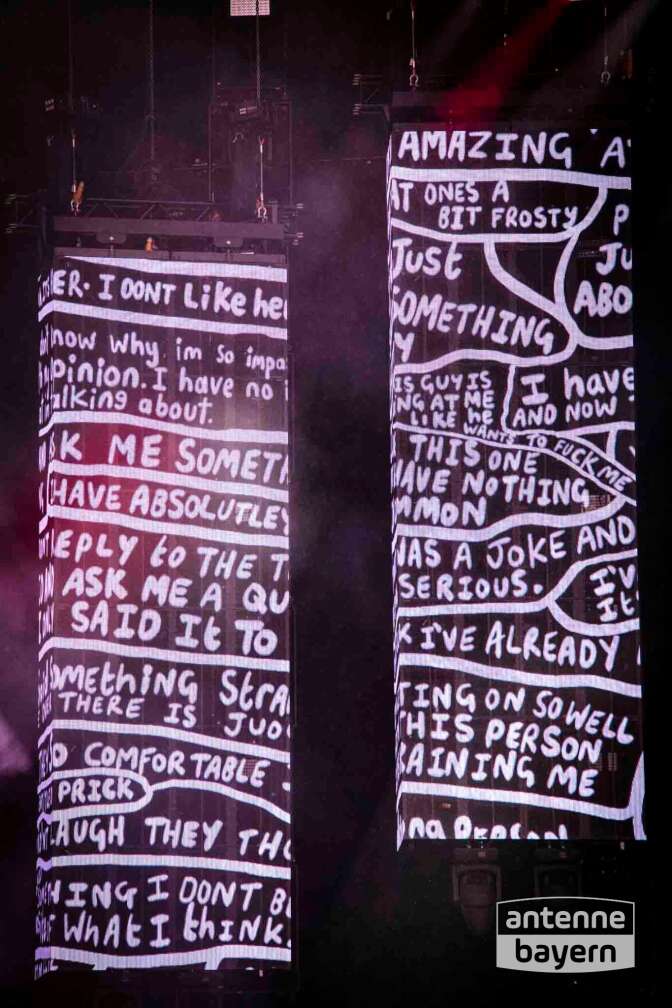 ER. I DONT Like he
now why im so impa
pinion. I have no i
alking about.
K ME SOMETH
HAVE ABSOLUTLEY
EPLY to THE T
ASK ME A QU
SAID It TO
OMething StrA
THERE IS JUD
O COMFORTABLE
PRICK
AUGH THEY THO
HING I DONT B
WhAt I think.
AMAZING A
AT ONES A
BIT FROSTY
JUST
SOMETHING
Y
P
JU
ABO
IS GUY IS
NG AT ME
LIKE He
WANTS TO FUCK ME
I have
AND NOW
THIS ONE
HAVE NOTHING
MMON
AS A JOKE AND
SERIOUS.
I'V
It
K I'VE ALREADY
TING ON SO WELL
THIS PERSON
AINING ME
ng Person
antenne
bayern